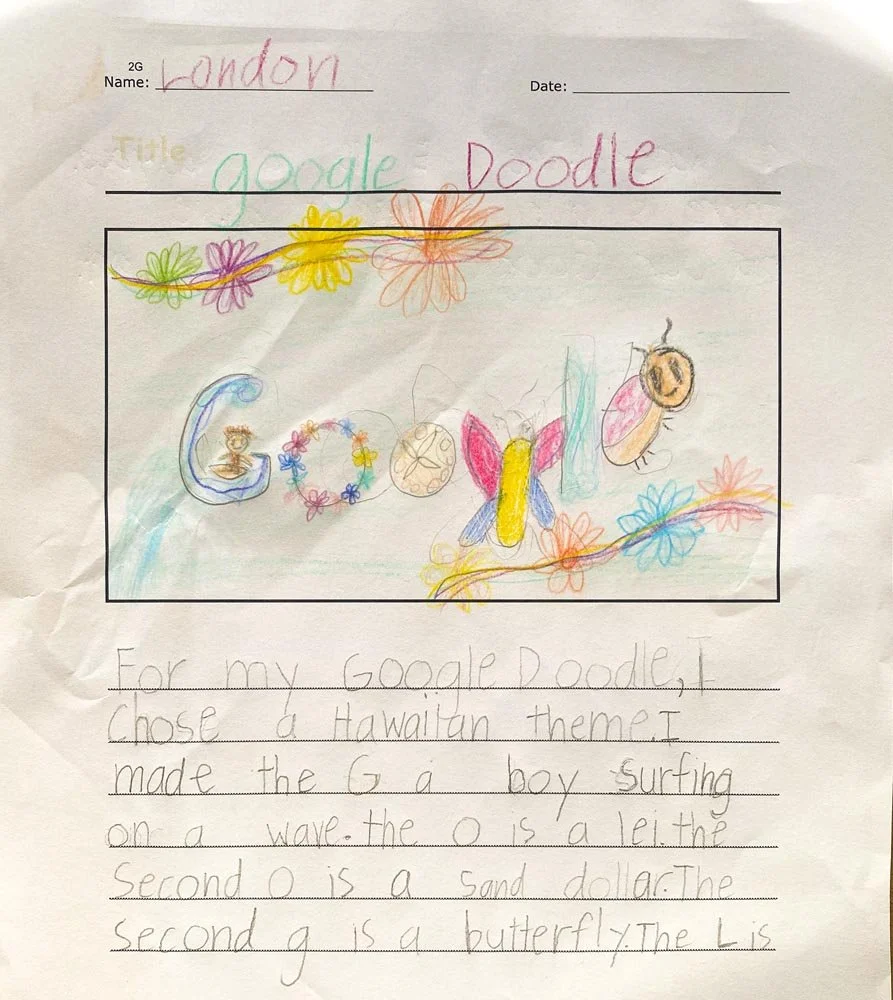 2G
Name: London Date:
Title google Doodle
Google
For my Google Doodle, I
Chose a Hawaiian theme. I
made the G a boy surfing
on a wave. the O is a lei. the
Second O is a sand dollar. The
Second g is a butterfly. The L is